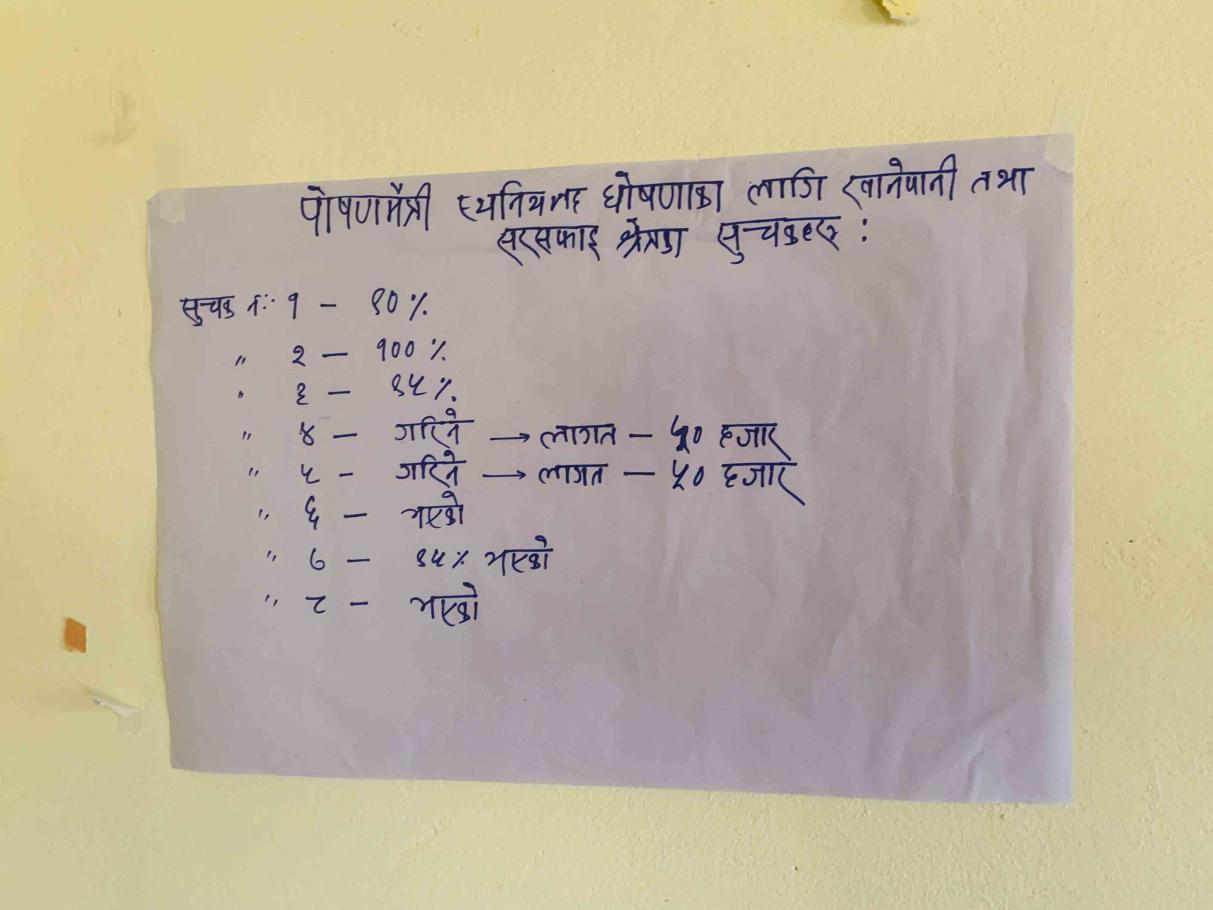 पोषणमैत्री स्थनियतह घोषणाका लागि खानेपानी तथा
सरसफाइ क्षेत्रका सुचकहरु :
सुचक नं: १ - ९०%
" २ - १००%
" ३ - ९५%
" ४ - गरिने → लागत - ५० हजार
" ५ - गरिने → लागत - ५० हजार
" ६ - भएको
" ७ - ९५% भएको
" ८ - भएको